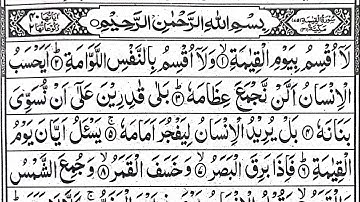 بِسْمِ اللهِ الرَّحْمٰنِ الرَّحِيْمِ
لَاۤ اُقْسِمُ بِيَوْمِ الْقِيٰمَةِ ۙ﴿۱﴾ وَلَاۤ اُقْسِمُ بِالنَّفْسِ اللَّوَّامَةِ ؕ﴿۲﴾ اَيَحْسَبُ
الْاِنْسَانُ اَلَّنْ نَّجْمَعَ عِظَامَهٗ ؕ﴿۳﴾ بَلٰى قٰدِرِيْنَ عَلٰۤى اَنْ نُّسَوِّىَ
بَنَانَهٗ ﴿۴﴾ بَلْ يُرِيْدُ الْاِنْسَانُ لِيَفْجُرَ اَمَامَهٗ ۚ﴿۵﴾ يَسْـَٔلُ اَيَّانَ يَوْمُ
الْقِيٰمَةِ ؕ﴿۶﴾ فَاِذَا بَرِقَ الْبَصَرُ ۙ﴿۷﴾ وَخَسَفَ الْقَمَرُ ۙ﴿۸﴾ وَجُمِعَ الشَّمْسُ